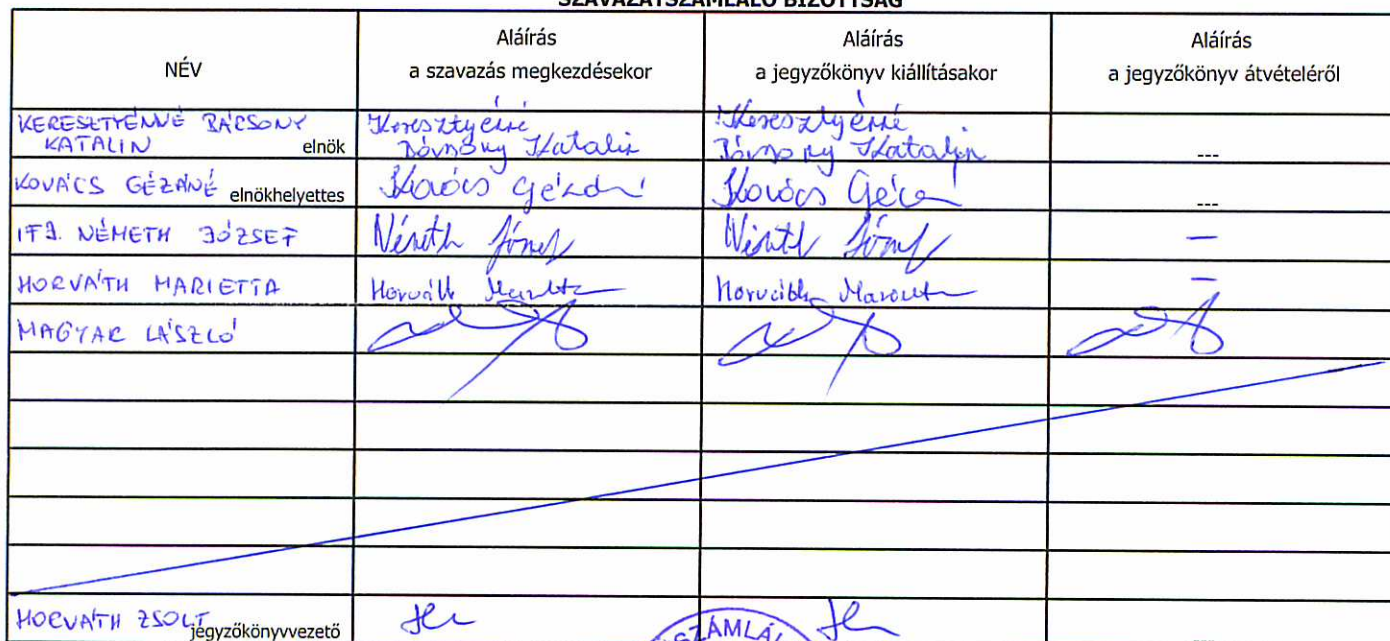 SZAVAZATSZÁMLÁLÓ BIZOTTSÁG
NÉV
Aláírás
a szavazás megkezdésekor
Aláírás
a jegyzőkönyv kiállításakor
Aláírás
a jegyzőkönyv átvételéről
KERESZTYÉNNÉ BÁCSONY
KATALIN elnök
Keresztyénné
Katalin
Keresztyénné
Katalin
---
KOVÁCS GÉZÁNÉ elnökhelyettes
Kovács Gézáné
Kovács
---
IFJ. NÉMETH JÓZSEF
Németh József
Németh József
—
HORVÁTH MARIETTA
Horváth Marietta
Horváth Marietta
—
MAGYAR LÁSZLÓ
HORVÁTH ZSOLT jegyzőkönyvvezető
SZÁMLÁL
---